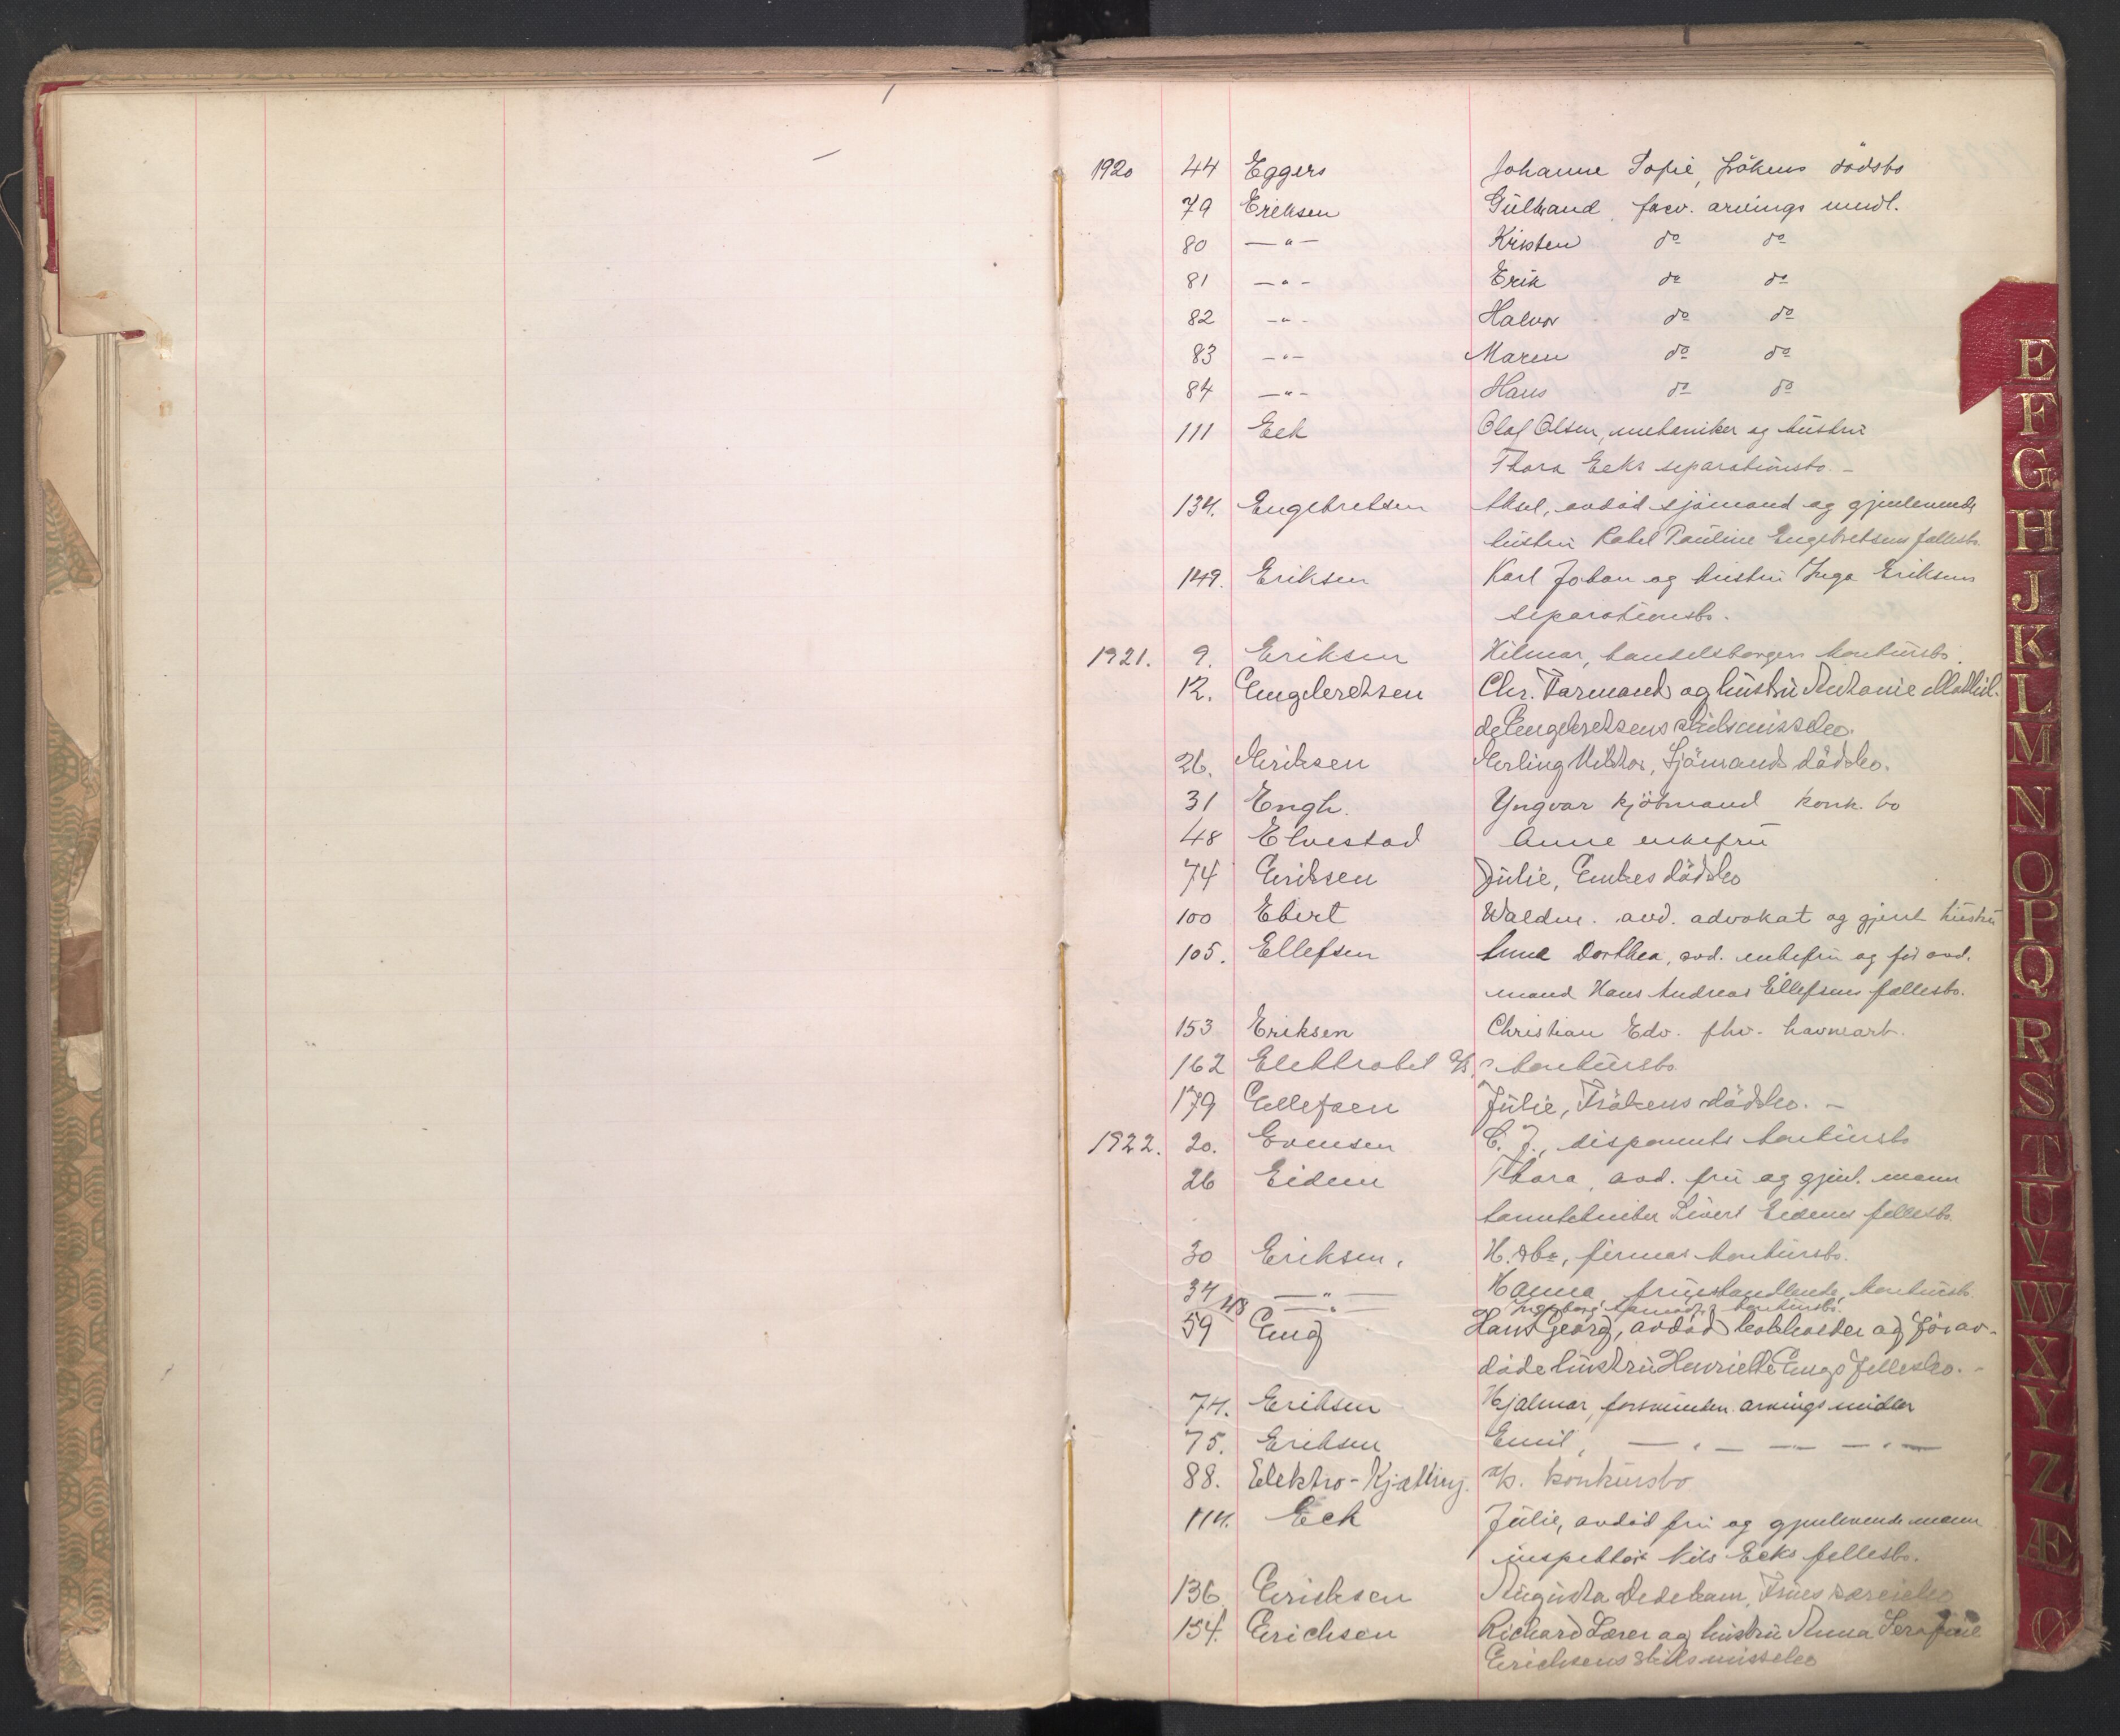 1920 44 Eggers Johanne Sofie, frökens dödsbo
79 Eriksen Gulbrand, forsv. arvings midl.
80 —"— Kristen do do
81 —"— Erik do do
82 —"— Halvor do do
83 —"— Maren do do
84 —"— Hans do do
111 Eek Olaf Olsen, mekaniker og hustru
Thora Eeks separationsbo. –
134. Engebretsen Aksel, avdöd sjömand og gjenlevende
hustru Rakel Pauline Engebretsens fællesbo.
149. Eriksen Karl Johan og hustru Inga Eriksens
separationsbo.
1921. 9. Eriksen Hilmar, handelsborgers konkursbo.
12. Engebretsen Chr. Formand og hustru Antonie Mathil-
de Engebretsens skilsmissebo.
26. Eriksen Erling Viktor, Sjömands dödsbo.
31 Engh. Yngvar kjöbmand konk. bo
48 Elvestad Anne enkefru
74 Eriksen Julie, Enkes dödsbo
100 Ebert Waldm. avd. advokat og gjenl. hustru
105. Ellefsen Anne Dorthea, avd. enkefru og för avd.
mand Hans Andreas Ellefsens fællesbo.
153 Eriksen Christian Edv. fhv. havnearb.
162 Elektrobel A/S, konkursbo.
179 Ellefsen Julie, Frökens dödsbo. –
1922. 20. Evensen C. J., disponents konkursbo
26 Eidem Thora, avd. fru og gjenl. mann
tanntekniker Sivert Eidems fellesbo.
30 Eriksen, H. & Co, firmas konkursbo.
34 —"— Hanna, frugthandlende, konkursbo.
48 —"— Ingeborg konkursbo.
59 Eng Hans Georg, avdöd og för av-
döde hustru Henriette Engs fellesbo. –
74. Eriksen Hjalmar, forsvunden arvings midler
75. Eriksen Emil, —"— — —"—
88. Elektro-Kjætting. A/S. konkursbo
114. Eek Julie, avdöd fru og gjenlevende mann
inspektör Nils Eeks fellesbo.
136. Erichsen Augusta Dedekam, Frues særeiebo
154. Erichsen Richard Lærer og hustru Anna Serafine
Erichsens skilsmissebo
E
F
G
H
J
K
L
M
N
O
P
Q
R
S
T
U
V
W
X
Y
Z
Æ
Ø